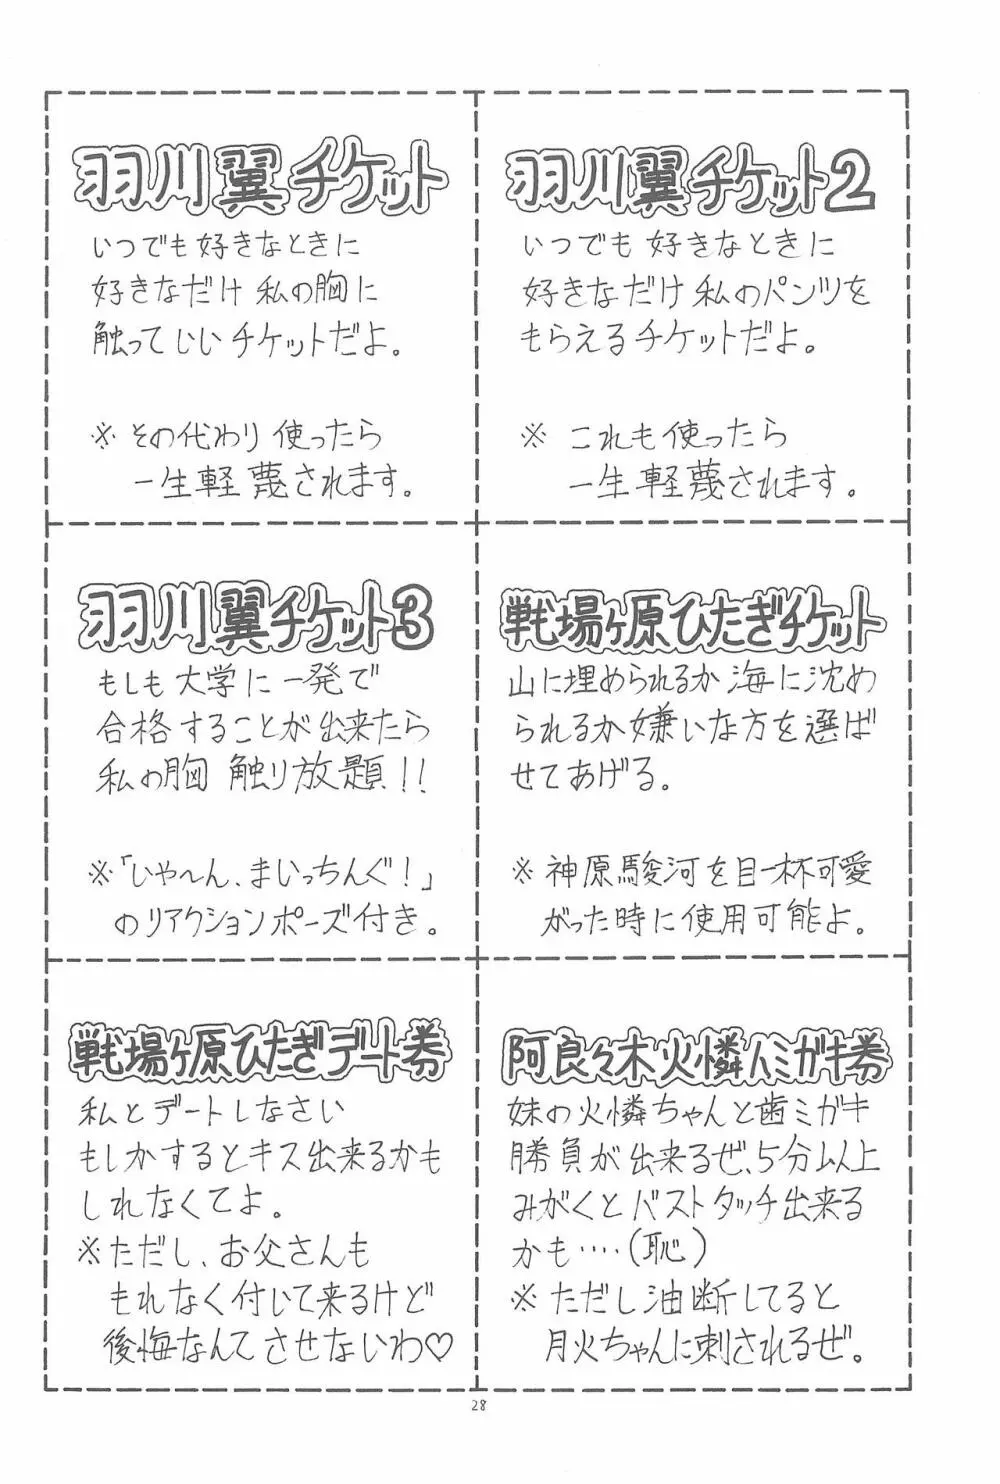 羽川翼チケット
いつでも好きなときに
好きなだけ私の胸に
触っていいチケットだよ。
※その代わり使ったら
一生軽蔑されます。
羽川翼チケット2
いつでも好きなときに
好きなだけ私のパンツを
もらえるチケットだよ。
※これも使ったら
一生軽蔑されます。
羽川翼チケット3
もしも大学に一発で
合格することが出来たら
私の胸触り放題!!
※「いや〜ん、まいっちんぐ!」
のリアクションポーズ付き。
戦場ヶ原ひたぎチケット
山に埋められるか海に沈め
られるか嫌いな方を選ば
せてあげる。
※神原駿河を目一杯可愛
がった時に使用可能よ。
戦場ヶ原ひたぎデート券
私とデートしなさい
もしかするとキス出来るかも
しれなくてよ。
※ただし、お父さんも
もれなく付いて来るけど
後悔なんてさせないわ♡
阿良々木火憐ハミガキ券
妹の火憐ちゃんと歯ミガキ
勝負が出来るぜ、5分以上
みがくとバストタッチ出来る
かも‥‥(恥)
※ただし油断してると
月火ちゃんに刺されるぜ。
28